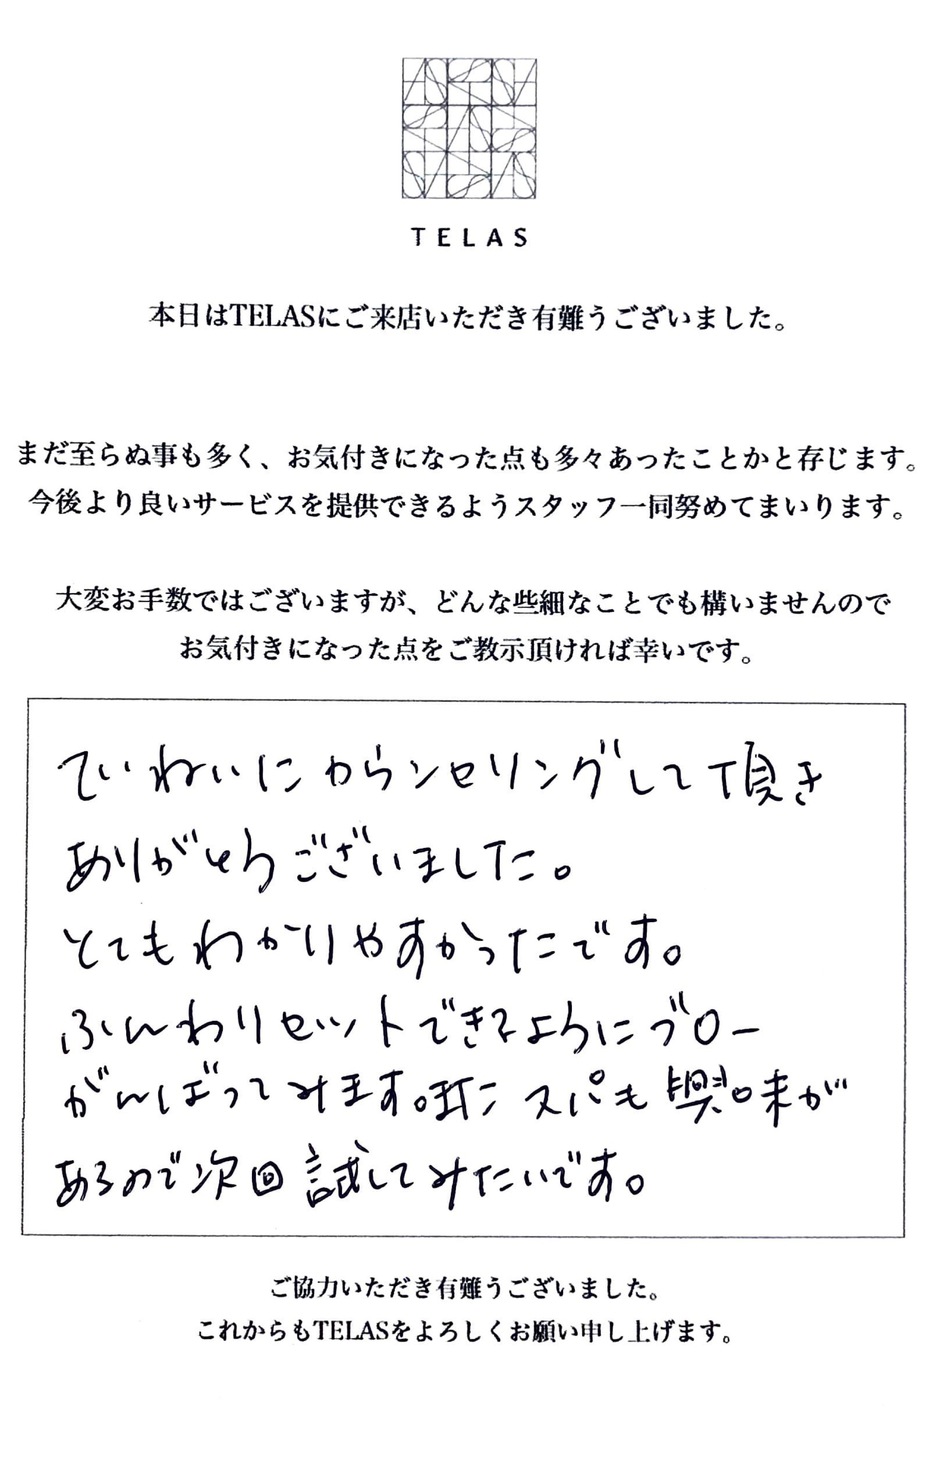 TELAS
本日はTELASにご来店いただき有難うございました。
まだ至らぬ事も多く、お気付きになった点も多々あったことかと存じます。
今後より良いサービスを提供できるようスタッフ一同努めてまいります。
大変お手数ではございますが、どんな些細なことでも構いませんので
お気付きになった点をご教示頂ければ幸いです。
ていねいにカウンセリングして頂き
ありがとうございました。
とてもわかりやすかったです。
ふんわりセットできるようにブロー
がんばってみます。またスパも興味が
あるので次回試してみたいです。
ご協力いただき有難うございました。
これからもTELASをよろしくお願い申し上げます。